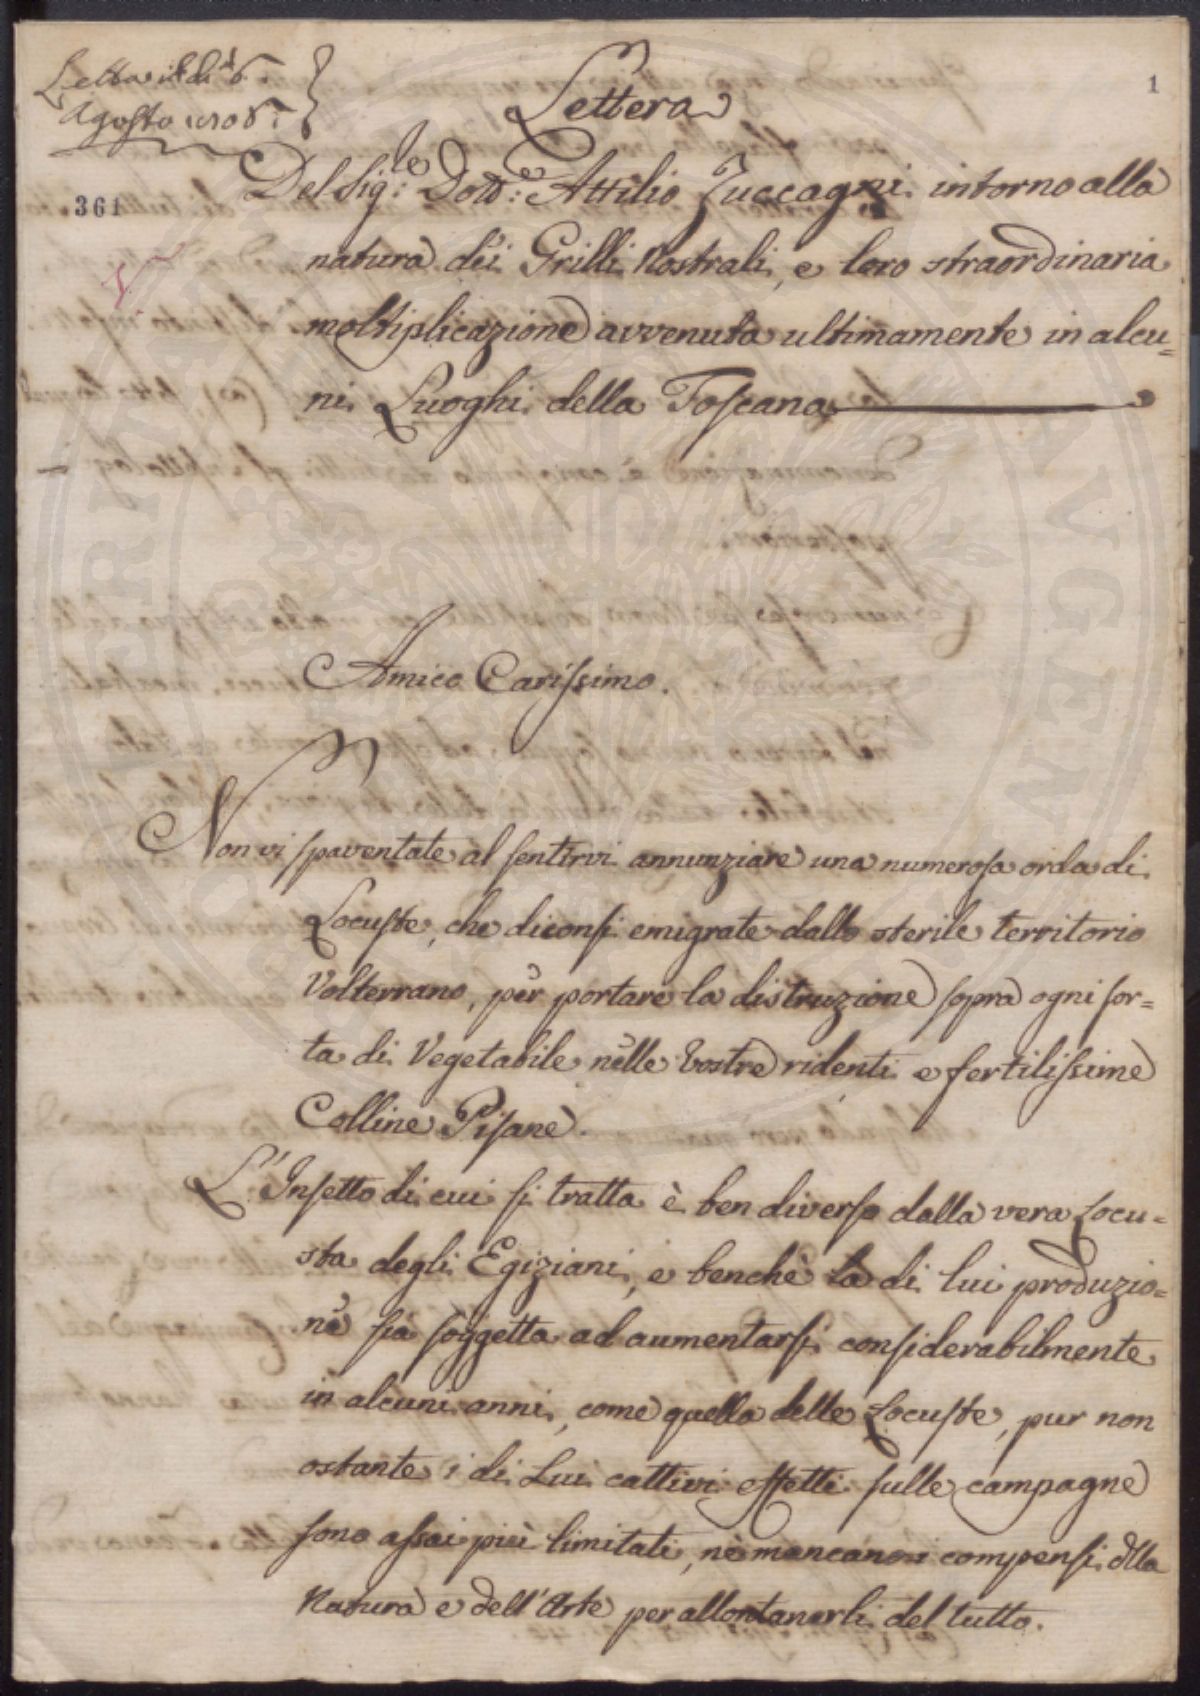 Letta il dì 6.
Agosto 1806.
1
361
Lettera
Del Sig:le Dott:e Attilio Zuccagni intorno alla
natura dei Grilli Nostrali, e loro straordinaria
moltiplicazione avvenuta ultimamente in alcu=
ni Luoghi della Toscana
Amico Carissimo.
Non vi spaventate al sentirvi annunziare una numerosa orda di
Locuste, che diconsi emigrate dallo sterile territorio
Volterrano, per portare la distruzione sopra ogni sor=
ta di Vegetabile nelle Vostre ridenti e fertilissime
Colline Pisane.
L'Insetto di cui si tratta è ben diverso dalla vera Locu=
sta degli Egiziani, e benchè la di lui produzio=
ne sia soggetta ad aumentarsi considerabilmente
in alcuni anni, come quella delle Locuste, pur non
ostante i di Lui cattivi effetti sulle campagne
sono assai più limitati, nè mancano i compensi dlla
Natura e dell'Arte per allontanarli del tutto.